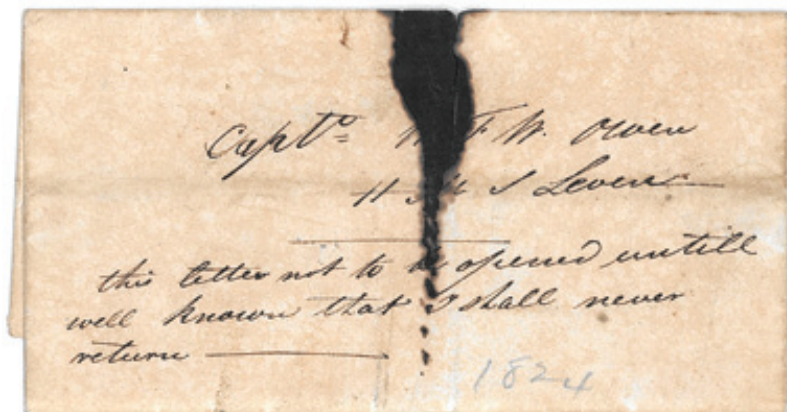 Captn W. F. W. Owen
H M S Leven
this letter not to be opened untill
well known that I shall never
return
1824